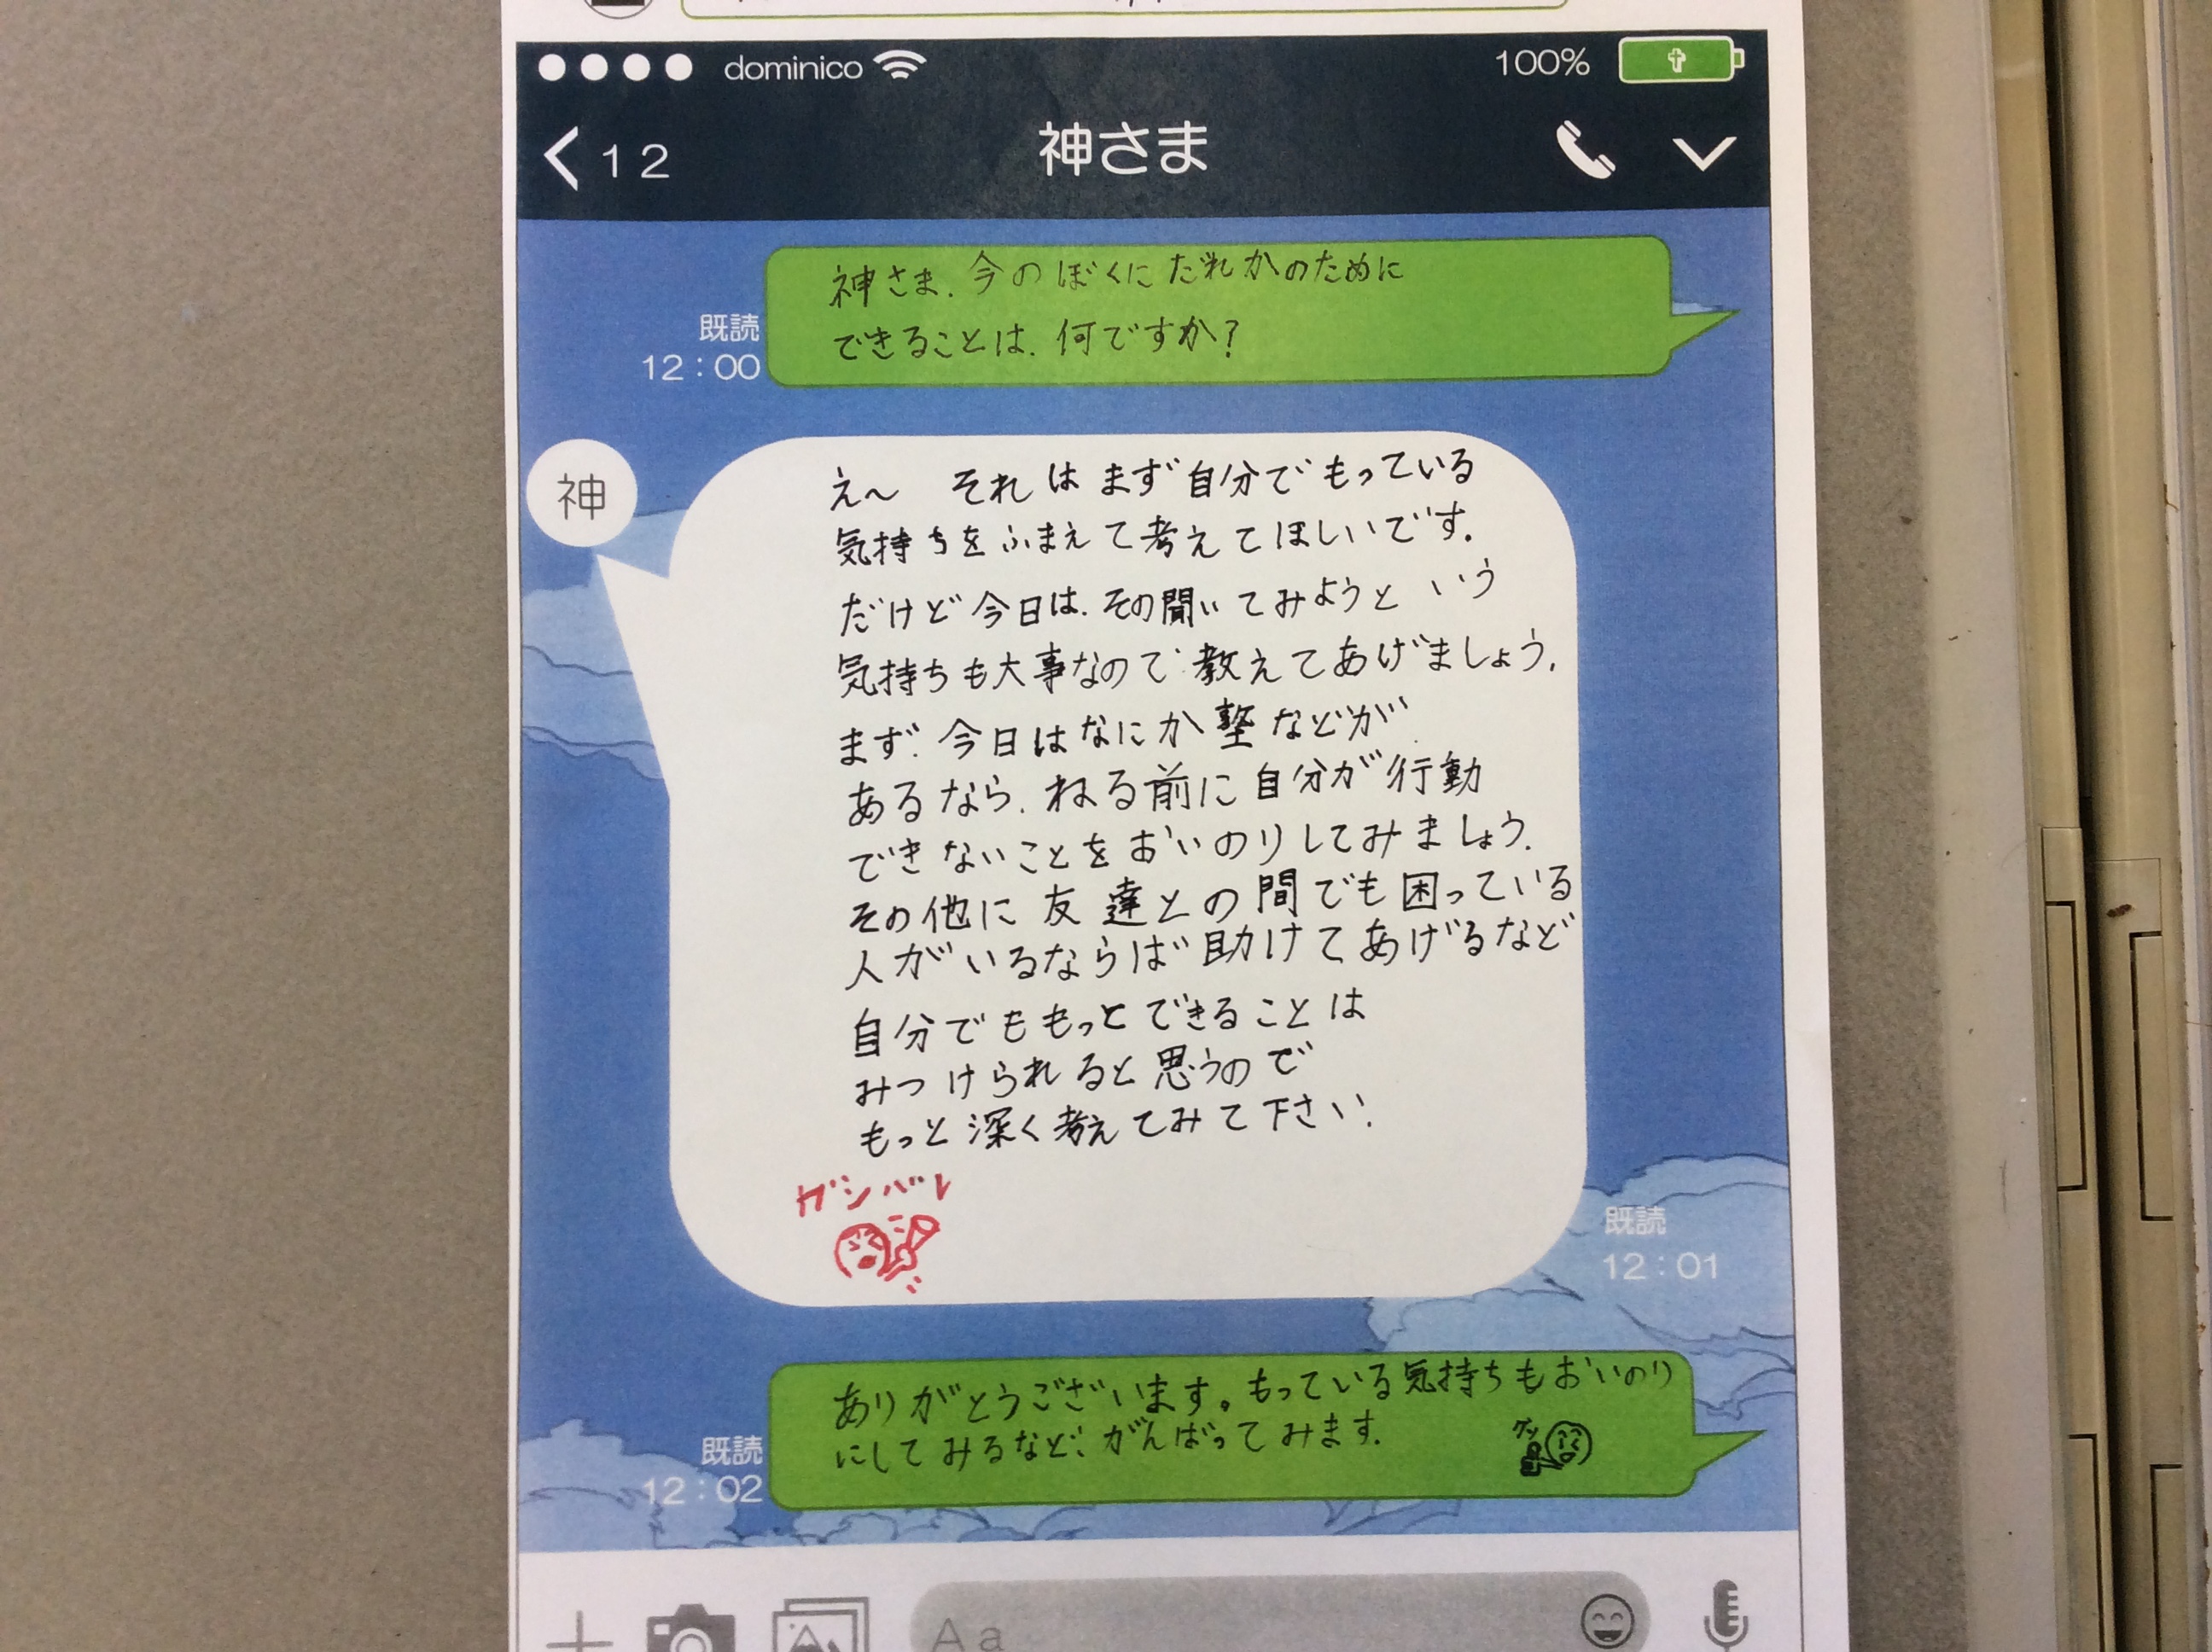 dominico 100%
12 神さま
神さま、今のぼくにだれかのために
できることは、何ですか?
既読
12:00
神
え〜 それはまず自分でもっている
気持ちをふまえて考えてほしいです。
だけど今日は、その聞いてみようという
気持ちも大事なので教えてあげましょう。
まず、今日はなにか塾などが
あるなら、ねる前に自分が行動
できないことをおいのりしてみましょう。
その他に友達との間でも困っている
人がいるならば助けてあげるなど
自分でももっとできることは
みつけられると思うので
もっと深く考えてみて下さい。
ガンバレ
既読
12:01
ありがとうございます。もっている気持ちもおいのり
にしてみるなど、がんばってみます。
グッ
既読
12:02
Aa